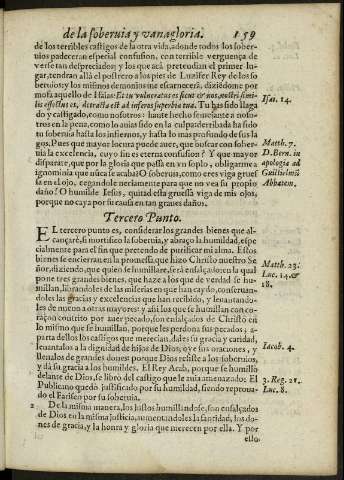 de la soberuia y vanagloria. 159
de los terribles castigos de la otra vida, adonde todos los sober-
uios padeceran especial confusion, con terrible verguença de
verse tan despreciados: y los que acá pretendian el primer lu-
gar, tendran allá el postrero a los pies de Luzifer Rey de los so-
beruios; y los mismos demonios me escarnecerá, diziédome por
mofa aquello de Isaias: Et tu vulneratus es sicut & nos, nostri simi-
lis effectus es, detracta est ad inferos superbia tua. Tu has sido llaga
do y castigado, como nosotros: haste hecho semejante a noso-
tros en la pena, como lo auias sido en la culpa: derribada ha sido
tu soberuia hasta los infiernos, y hasta lo mas profundo de sus la
gos. Pues que mayor locura puede auer, que buscar con sober-
uia la excelencia, cuyo fin es eterna confusion? Y que mayor
disparate, que por la gloria que passa en vn soplo, obligarme a
ignominia que núca se acaba? O soberuia, como eres viga grues
sa en el ojo, cegandole neciamente para que no vea su propio
daño! O humilde Iesus, quitad esta gruessa viga de mis ojos,
porque no caya por su causa en tan graues daños.
Isai. 14.
Matth. 7.
D. Bern. in
apologia ad
Guilielmũ
Abbatem.
Tercero Punto.
EL tercero punto es, considerar los grandes bienes que al-
cançaré, si mortifico la soberuia, y abraço la humildad, espe-
cialmente para el fin que pretendo de purificar mi alma. Estos
bienes se encierran en la promessa que hizo Christo nuestro Se
ñor, diziendo, que quien se humillare, será ensalçado: en la qual
pone tres grandes bienes, que haze a los que de verdad se hu-
millan, librandoles de las miserias en que han caydo, conseruan-
doles las gracias y excelencias que han recibido, y leuantando-
les de nueuo a otras mayores: y assi los que se humillan con co-
raçon contrito por auer pecado, son ensalçados de Christo en
lo mismo que se humillan, porque les perdona sus pecados; a-
parta dellos los castigos que merecian, dales su gracia y caridad,
leuantalos a la dignidad de hijos de Dios, oye sus oraciones, y
llenalos de grandes dones: porque Dios resiste a los soberuios,
y dá su gracia a los humildes. El Rey Acab, porque se humilló
delante de Dios, se libró del castigo que le auia amenazado: El
Publicano quedó justificado por su humildad, siendo reproua-
do el Fariseo por su soberuia.
Matth. 23.
Luc. 14. &
18.
Iacob. 4.
3. Reg. 21.
Luc. 8.
2 De la misma manera, los justos humillandose, son ensalçados
de Dios en la misma justicia, aumentandoles la santidad, los do-
nes de gracia, y la honra y gloria que merecen por ella. Y por
ello,